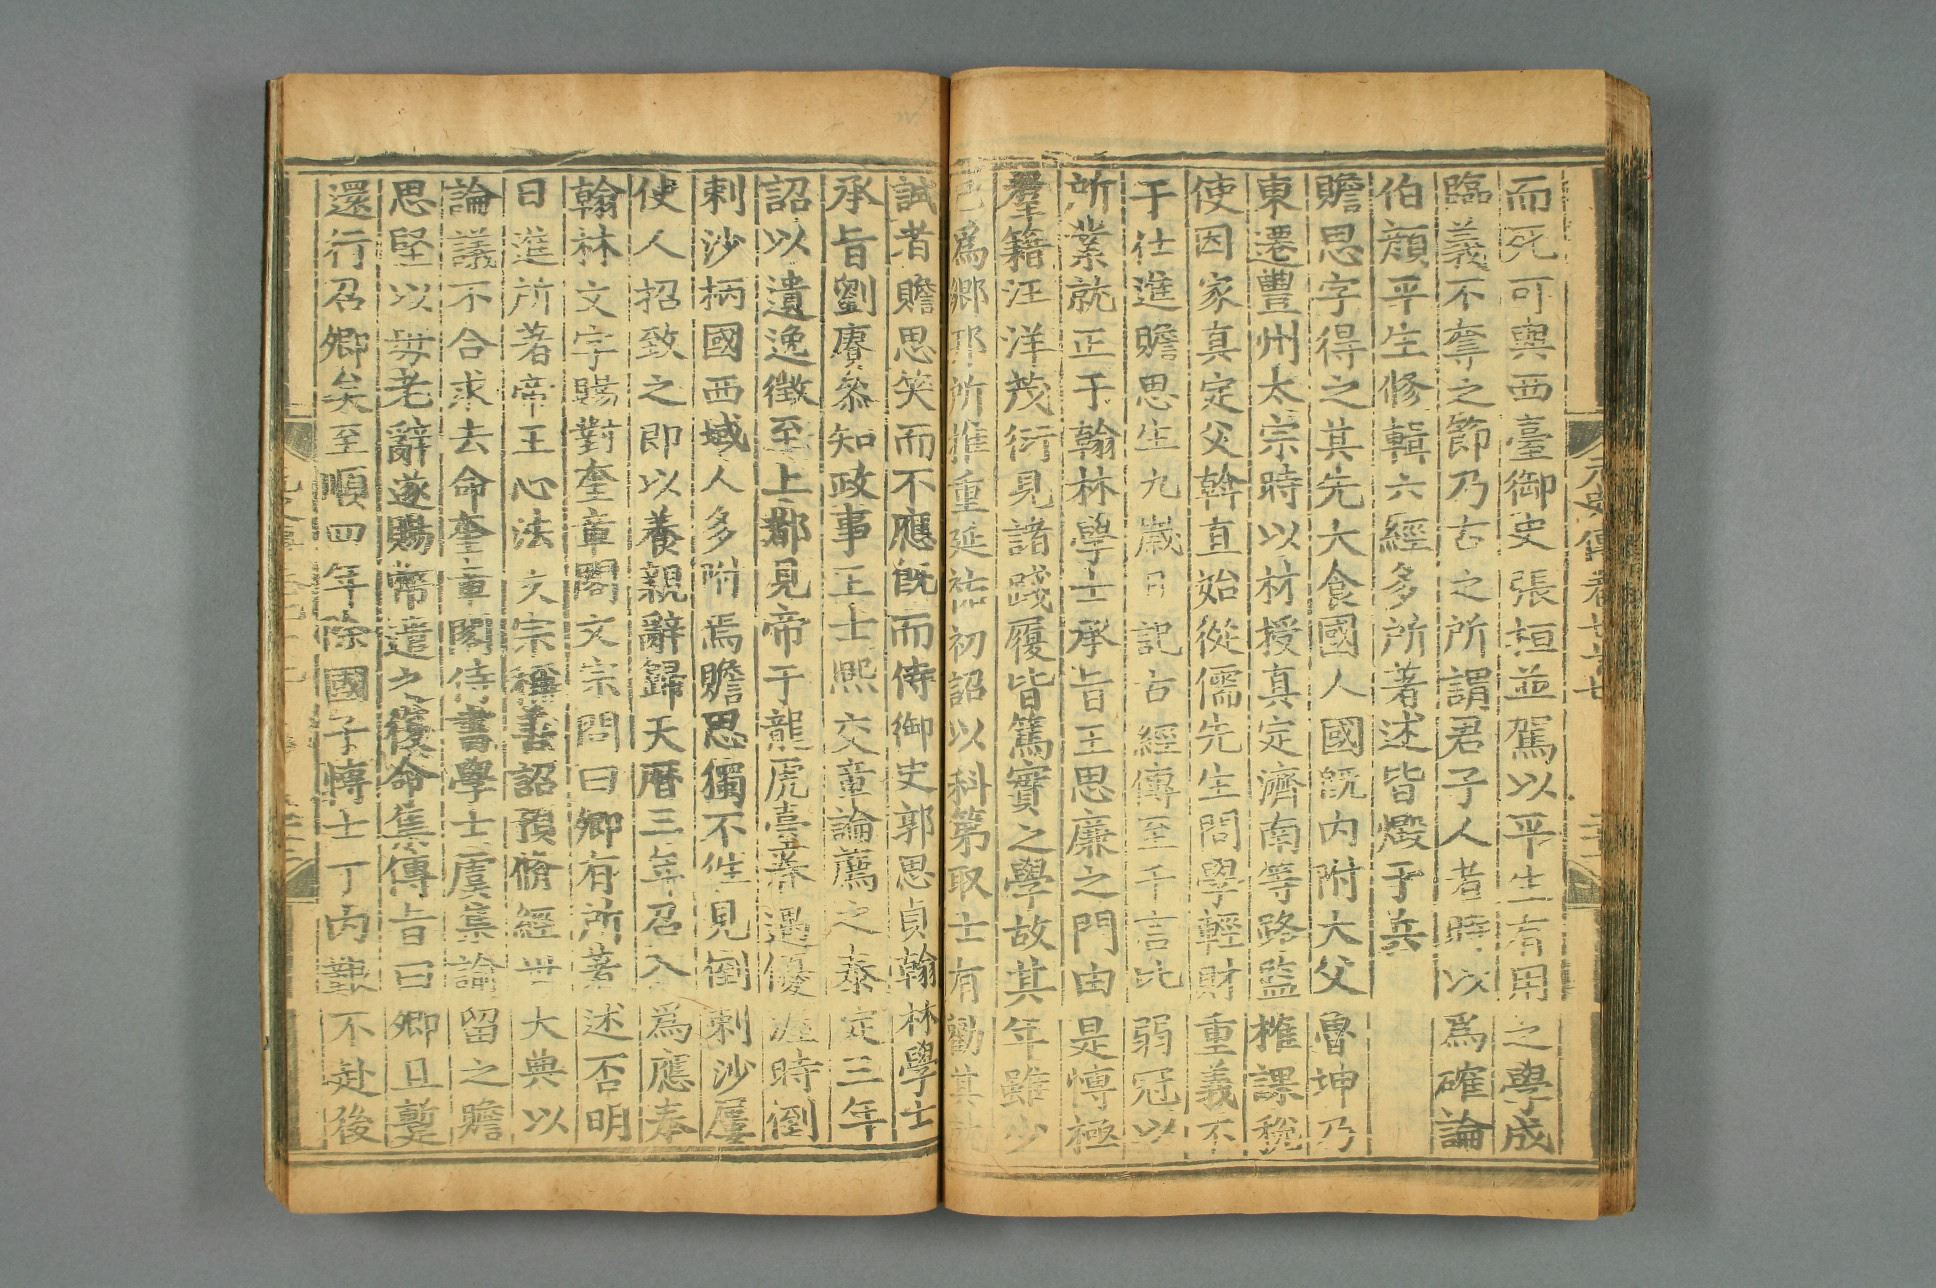 而死可與西臺御史張桓並駕以平生有用之學成
臨義不奪之節乃古之所謂君子人者時以爲確論
伯顔平生修輯六經多所著述皆燬于兵
贍思字得之其先大食國人國旣内附大父魯坤乃
東遷豐州太宗時以材授真定濟南等路監榷課稅
使因家真定父斡直始從儒先生問學輕財重義不
干仕進贍思生九歲日記古經傳至千言比弱冠以
所業就正于翰林學士承旨王思廉之門由是愽極
羣籍汪洋茂衍見諸踐履皆篤實之學故其年雖少
已爲鄉邦所推重延祐初詔以科第取士有勸其就
試者贍思笑而不應旣而侍御史郭思貞翰林學士
承旨劉賡叅知政事王士熙交章論薦之泰定三年
詔以遺逸徵至上都見帝于龍虎臺眷遇優渥時倒
剌沙柄國西域人多附焉贍思獨不往見倒剌沙屢
使人招致之即以養親辭歸天曆三年召入爲應奉
翰林文字賜對奎章閣文宗問曰卿有所著述否明
日進所著帝王心法文宗稱善詔預脩經世大典以
論議不合求去命奎章閣侍書學士虞集諭留之贍
思堅以母老辭遂賜幣遣之復命集傳旨曰卿且蹔
還行召卿矣至順四年除國子愽士丁内艱不赴後
元史傳卷七十七